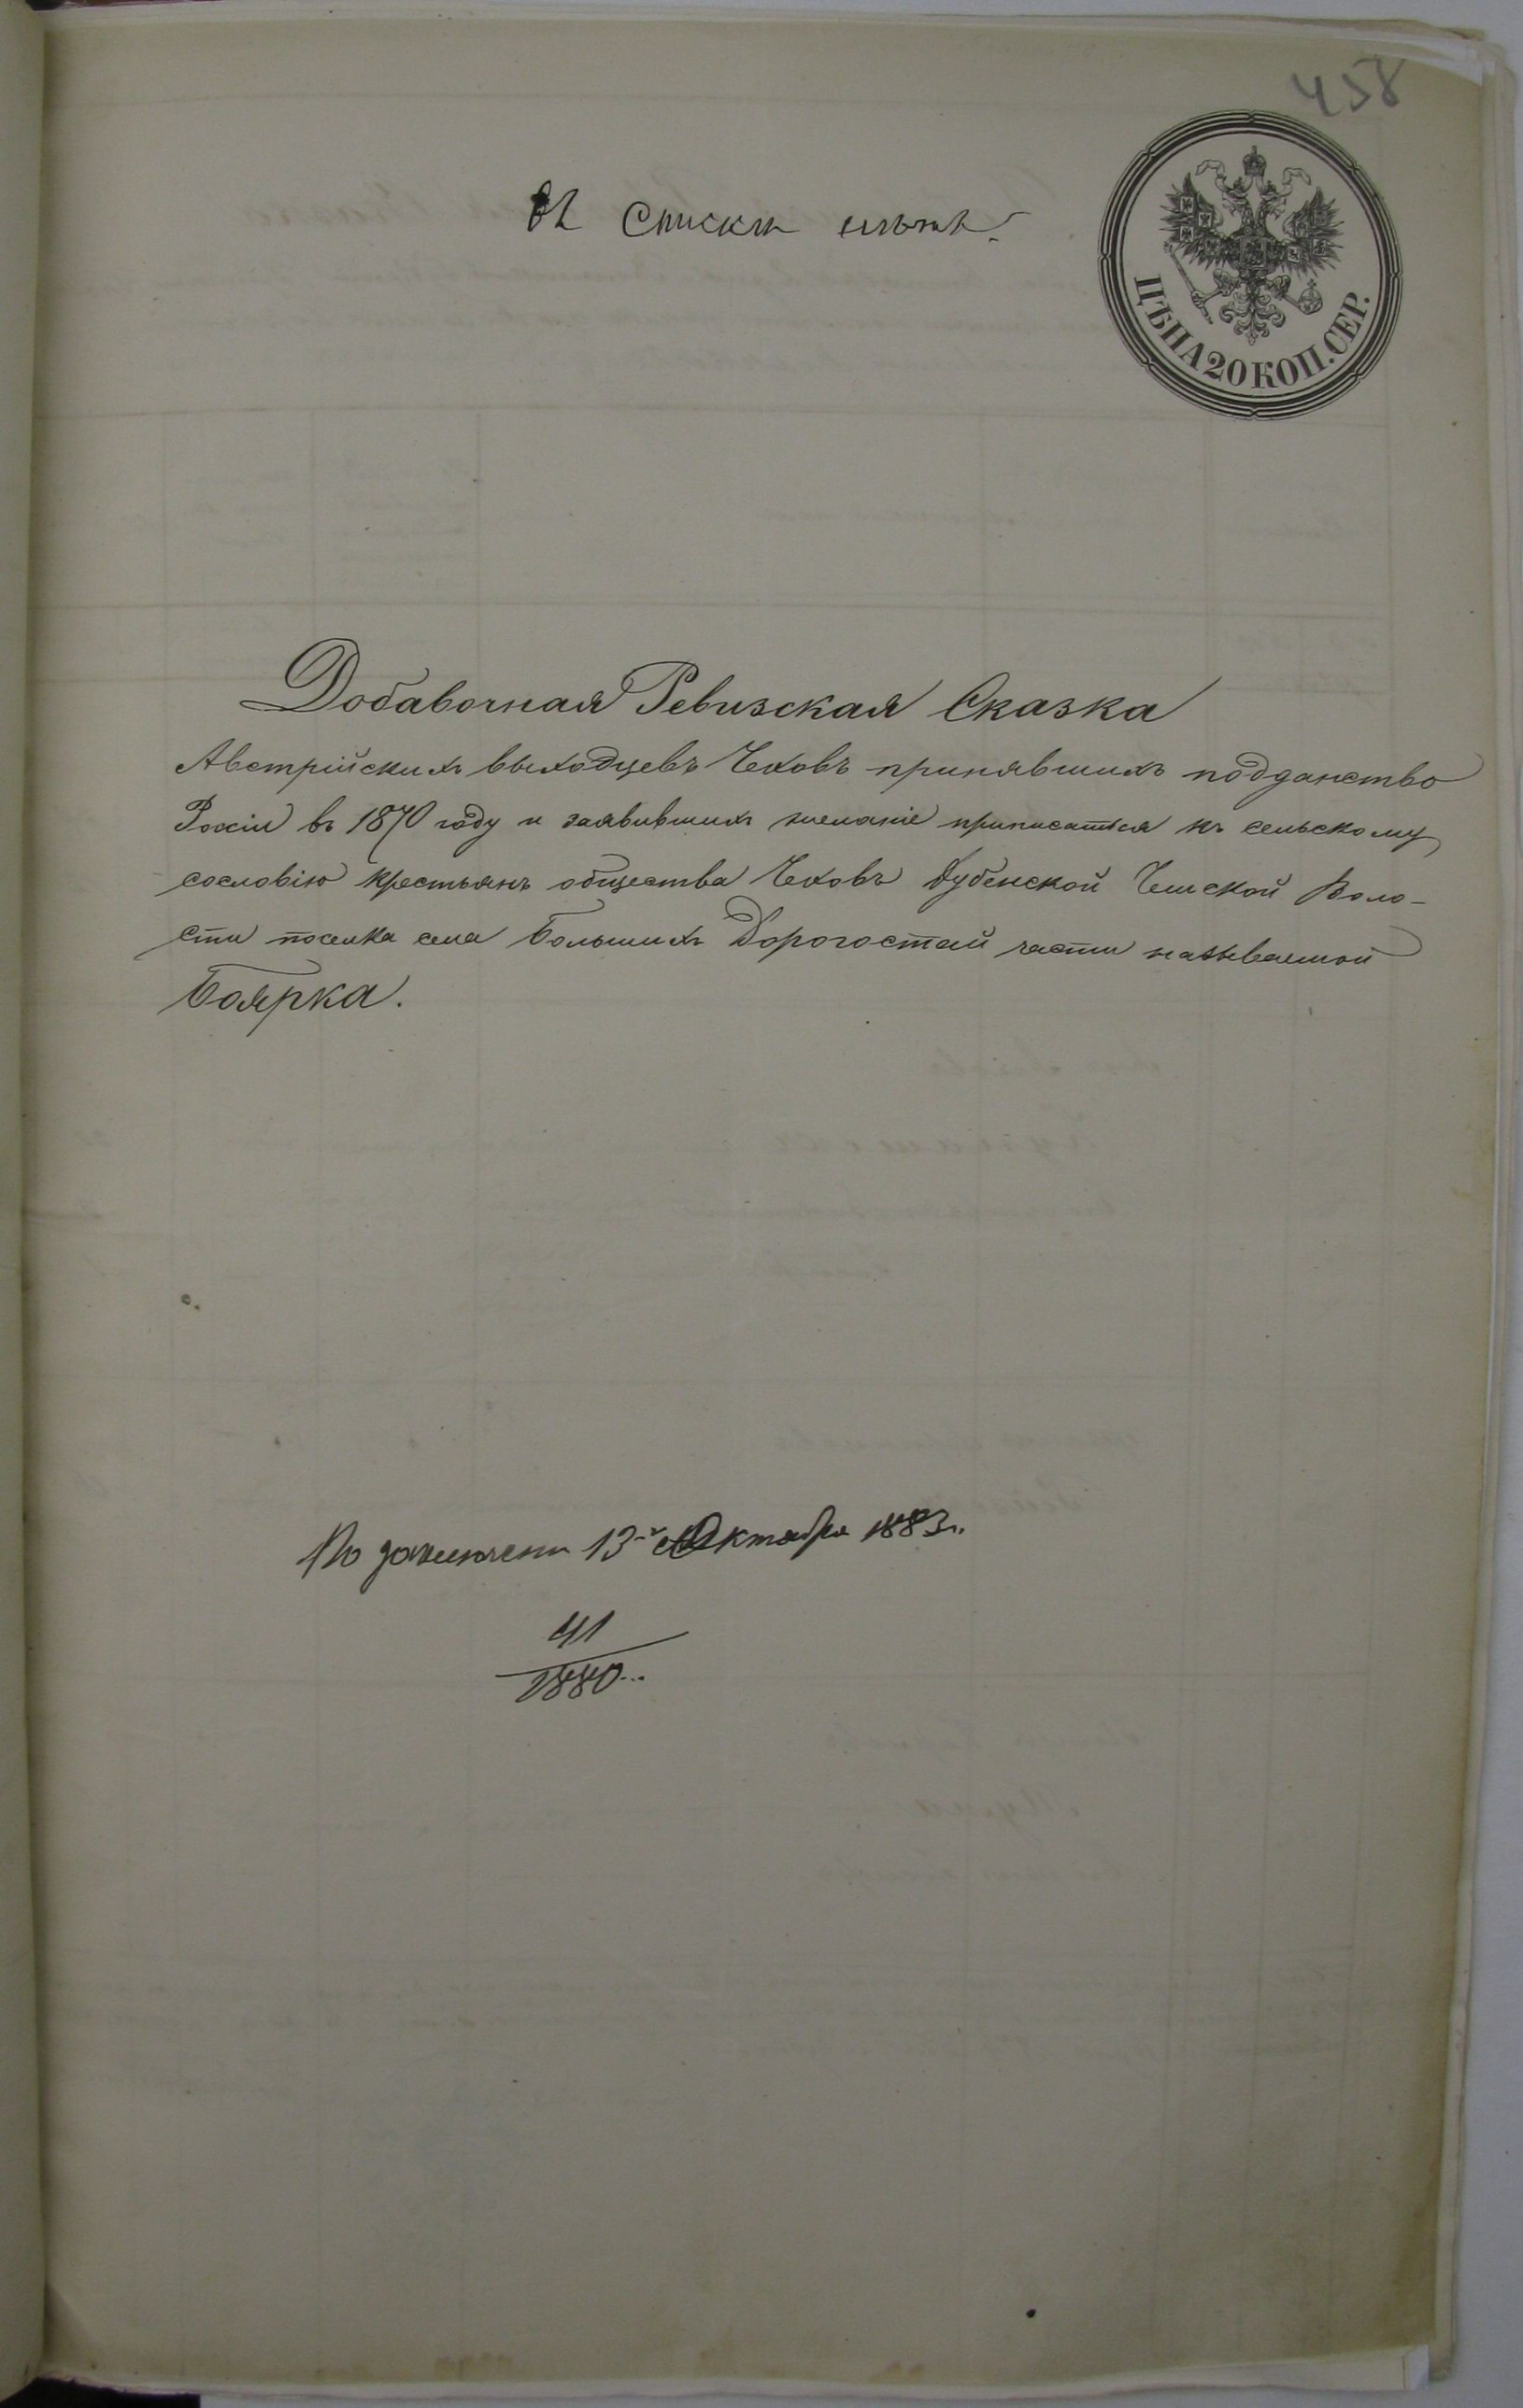 458
въ списки
ЦѢНА 20 КОП. СЕР.
Добавочная Ревизская Сказка
Австрійскихъ выходцевъ Чеховъ принявшихъ подданство
Россіи въ 1870 году и заявившихъ желаніе приписаться къ сельскому
сословію крестьянъ общества Чеховъ Дубенской Чешской Воло-
сти поселка села Большихъ Дорогостай части называемой
Боярка.
По заключенію 13 Октября 1883 г.
41
1880